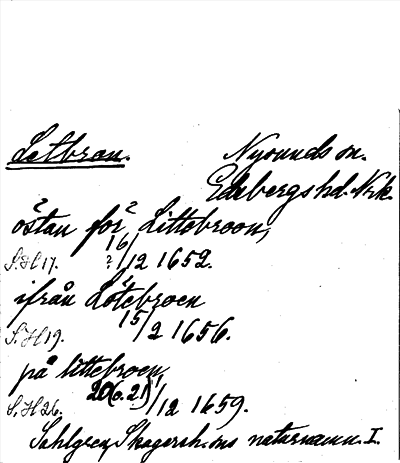 Letbron. Nysunds sn.
Edsbergs hd. Nrk.
östan för Littebroon,
S.H 17. 16/12 1652.
?
ifrån Lötebroen
S.H 19. 15/2 1656.
på littebroen,
S.H 26. 20(o.21)/12 1659.
Sahlgren, Skagersh. sns naturnamn. I.